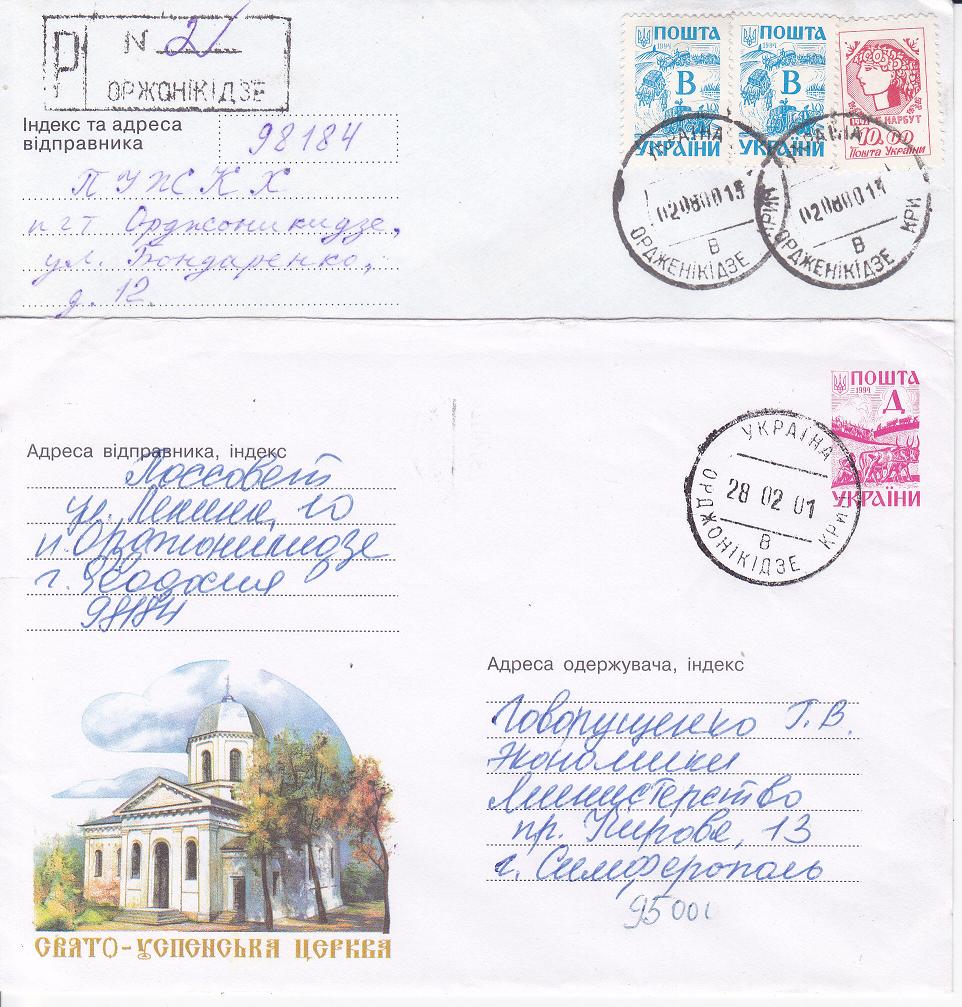 Р N 21
ОРЖОНІКІДЗЕ
Індекс та адреса
відправника
98184
ПУЖСКХ
пгт Орджоникидзе,
ул. Бондаренко,
д. 12.
ПОШТА
1994
В
УКРАЇНИ
ПОШТА
1994
В
УКРАЇНИ
НАРБУТ
10.00
Пошта України
УКРАЇНА
КРИМ
02080015
В
ОРДЖЕНІКІДЗЕ
УКРАЇНА
КРИ
0208001
В
ОРДЖЕНІКІДЗЕ
ПОШТА
1994
Д
УКРАЇНИ
УКРАЇНА
28 02 01
В
ОРДЖОНІКІДЗЕ КРИ
Адреса відправника, індекс
Поссовет
ул. Ленина, 10
п. Орджоникидзе
г. Феодосия
98184
Адреса одержувача, індекс
Говорущенко Г.В.
Экономики
Министерство
пр. Кирова, 13
г. Симферополь
95001
СВЯТО-УСПЕНСЬКА ЦЕРКВА